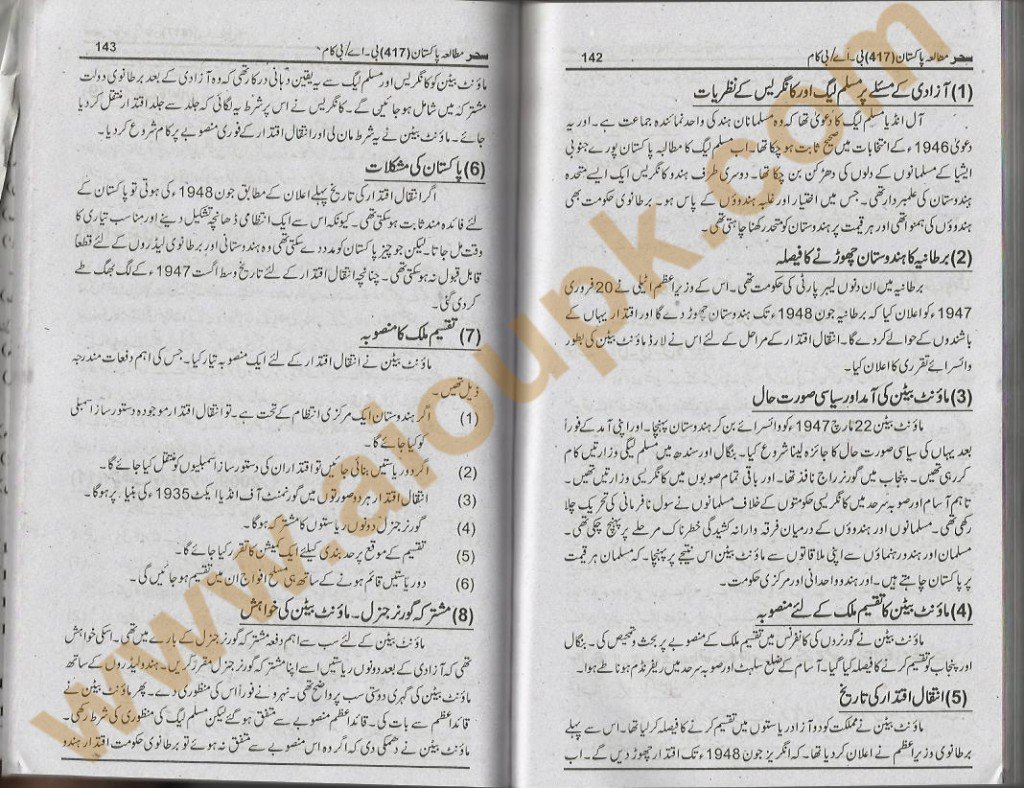 سحر مطالعہ پاکستان (417) بی۔اے/بی کام
142
(1) آزادی کے مسئلے پر مسلم لیگ اور کانگریس کے نظریات
آل انڈیا مسلم لیگ کا دعویٰ تھا کہ وہ مسلمانان ہند کی واحد نمائندہ جماعت ہے۔ اور یہ
دعویٰ 1946ء کے انتخابات میں صحیح ثابت ہو چکا تھا۔ اب مسلم لیگ کا مطالبہ پاکستان پورے جنوبی
ایشیا کے مسلمانوں کے دلوں کی دھڑکن بن چکا تھا۔ دوسری طرف ہندو کانگریس ایک ایسے متحدہ
ہندوستان کی علمبردار تھی۔ جس میں اختیار اور غلبہ ہندوؤں کے پاس ہو۔ برطانوی حکومت بھی
ہندوؤں کی ہمنوا تھی اور ہر قیمت پر ہندوستان کو متحد رکھنا چاہتی تھی۔
(2) برطانیہ کا ہندوستان چھوڑنے کا فیصلہ
برطانیہ میں ان دنوں لیبر پارٹی کی حکومت تھی۔ اس کے وزیراعظم اٹیلی نے 20 فروری
1947 کو اعلان کیا کہ برطانیہ جون 1948ء تک ہندوستان چھوڑ دے گا اور اقتدار یہاں کے
باشندوں کے حوالے کر دے گا۔ انتقال اقتدار کے مراحل کے لئے اس نے لارڈ ماؤنٹ بیٹن کی بطور
وائسرائے تقرری کا اعلان کیا۔
(3) ماؤنٹ بیٹن کی آمد اور سیاسی صورت حال
ماؤنٹ بیٹن 22 مارچ 1947ء کو وائسرائے بن کر ہندوستان پہنچا۔ اور اپنی آمد کے فوراً
بعد یہاں کی سیاسی صورت حال کا جائزہ لینا شروع کیا۔ بنگال اور سندھ میں مسلم لیگی وزارتیں کام
کر رہی تھیں۔ پنجاب میں گورنر راج نافذ تھا۔ اور باقی تمام صوبوں میں کانگریسی وزارتیں تھیں۔
تاہم آسام اور صوبہ سرحد میں کانگریسی حکومتوں کے خلاف مسلمانوں نے سول نافرمانی کی تحریک چلا
رکھی تھی۔ مسلمانوں اور ہندوؤں کے درمیان فرقہ وارانہ کشیدگی خطرناک مرحلے پر پہنچ چکی تھی۔
مسلمان اور ہندو رہنماؤں سے اپنی ملاقاتوں سے ماؤنٹ بیٹن اس نتیجے پر پہنچا۔ کہ مسلمان ہر قیمت
پر پاکستان چاہتے ہیں۔ اور ہندو واحدانی اور مرکزی حکومت۔
(4) ماؤنٹ بیٹن کا تقسیم ملک کے لئے منصوبہ
ماؤنٹ بیٹن نے گورنروں کی کانفرنس میں تقسیم ملک کے منصوبے پر بحث و تمحیص کی۔ بنگال
اور پنجاب کو تقسیم کرنے کا فیصلہ کیا گیا۔ آسام کے ضلع سلہٹ اور صوبہ سرحد میں ریفرنڈم ہونا طے ہوا۔
(5) انتقال اقتدار کی تاریخ
ماؤنٹ بیٹن نے مملکت کو دو آزاد ریاستوں میں تقسیم کرنے کا فیصلہ کر لیا تھا۔ اس سے پہلے
برطانوی وزیراعظم نے اعلان کر دیا تھا۔ کہ انگریز جون 1948ء تک اقتدار چھوڑ دیں گے۔ اب
سحر مطالعہ پاکستان (417) بی۔اے/بی کام
143
ماؤنٹ بیٹن کو کانگریس اور مسلم لیگ سے یہ یقین دہانی درکار تھی کہ وہ آزادی کے بعد برطانوی دولت
مشترکہ میں شامل ہو جائیں گے۔ کانگریس نے اس پر شرط یہ لگائی کہ جلد سے جلد اقتدار منتقل کر دیا
جائے۔ ماؤنٹ بیٹن نے یہ شرط مان لی اور انتقال اقتدار کے فوری منصوبے پر کام شروع کر دیا۔
(6) پاکستان کی مشکلات
اگر انتقال اقتدار کی تاریخ پہلے اعلان کے مطابق جون 1948ء کی ہوتی تو پاکستان کے
لئے فائدہ مند ثابت ہو سکتی تھی۔ کیونکہ اس سے ایک انتظامی ڈھانچہ تشکیل دینے اور مناسب تیاری کا
وقت مل جاتا۔ لیکن جو چیز پاکستان کو مدد دے سکتی تھی وہ ہندوستانی اور برطانوی لیڈروں کے لئے قطعاً
قابل قبول نہ ہو سکتی تھی۔ چنانچہ انتقال اقتدار کے لئے تاریخ وسط اگست 1947ء کے لگ بھگ طے
کر دی گئی۔
(7) تقسیم ملک کا منصوبہ
ماؤنٹ بیٹن نے انتقال اقتدار کے لئے ایک منصوبہ تیار کیا۔ جس کی اہم دفعات مندرجہ
ذیل تھیں۔
(1) اگر ہندوستان ایک مرکزی انتظام کے تحت ہے۔ تو انتقال اقتدار موجودہ دستور ساز اسمبلی
کو کیا جائے گا۔
(2) اگر دو ریاستیں بنائی جائیں تو اقتدار ان کی دستور ساز اسمبلیوں کو منتقل کیا جائے گا۔
(3) انتقال اقتدار ہر دو صورتوں میں گورنمنٹ آف انڈیا ایکٹ 1935ء کی بنیاد پر ہوگا۔
(4) گورنر جنرل دونوں ریاستوں کا مشترکہ ہوگا۔
(5) تقسیم کے موقع پر حد بندی کیلئے ایک کمیشن کا تقرر کیا جائے گا۔
(6) دو ریاستیں قائم ہونے کے ساتھ ہی مسلح افواج ان میں تقسیم ہو جائیں گی۔
(8) مشترکہ گورنر جنرل۔ ماؤنٹ بیٹن کی خواہش
ماؤنٹ بیٹن کے لئے سب سے اہم دفعہ مشترکہ گورنر جنرل کے بارے میں تھی۔ اسکی خواہش
تھی کہ آزادی کے بعد دونوں ریاستیں اسے اپنا مشترکہ گورنر جنرل مقرر کریں۔ ہندو لیڈروں کے ساتھ
ماؤنٹ بیٹن کی گہری دوستی سب پر واضح تھی۔ نہرو نے فوراً اس کی منظوری دے۔ پھر ماؤنٹ بیٹن نے
قائداعظم سے بات کی۔ قائداعظم منصوبے سے متفق ہو گئے لیکن مسلم لیگ کی منظوری کی شرط رکھی۔
ماؤنٹ بیٹن نے دھمکی دی کہ اگر وہ اس منصوبے سے متفق نہ ہوئے تو برطانوی حکومت اقتدار ہندو
www.aioupk.com